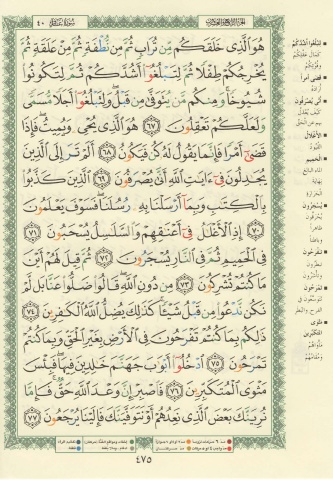 سُورَةُ غَافِر ٤٠
هُوَ ٱلَّذِى خَلَقَكُم مِّن تُرَابٍ ثُمَّ مِن نُّطْفَةٍ ثُمَّ مِنْ عَلَقَةٍ ثُمَّ
يُخْرِجُكُمْ طِفْلًا ثُمَّ لِتَبْلُغُوٓا۟ أَشُدَّكُمْ ثُمَّ لِتَكُونُوا۟
شُيُوخًا وَمِنكُم مَّن يُتَوَفَّىٰ مِن قَبْلُ وَلِتَبْلُغُوٓا۟ أَجَلًا مُّسَمًّى
وَلَعَلَّكُمْ تَعْقِلُونَ ٦٧ هُوَ ٱلَّذِى يُحْىِۦ وَيُمِيتُ فَإِذَا
قَضَىٰٓ أَمْرًا فَإِنَّمَا يَقُولُ لَهُۥ كُن فَيَكُونُ ٦٨ أَلَمْ تَرَ إِلَى ٱلَّذِينَ
يُجَٰدِلُونَ فِىٓ ءَايَٰتِ ٱللَّهِ أَنَّىٰ يُصْرَفُونَ ٦٩ ٱلَّذِينَ كَذَّبُوا۟
بِٱلْكِتَٰبِ وَبِمَآ أَرْسَلْنَا بِهِۦ رُسُلَنَا فَسَوْفَ يَعْلَمُونَ
٧٠ إِذِ ٱلْأَغْلَٰلُ فِىٓ أَعْنَٰقِهِمْ وَٱلسَّلَٰسِلُ يُسْحَبُونَ ٧١
فِى ٱلْحَمِيمِ ثُمَّ فِى ٱلنَّارِ يُسْجَرُونَ ٧٢ ثُمَّ قِيلَ لَهُمْ أَيْنَ
مَا كُنتُمْ تُشْرِكُونَ ٧٣ مِن دُونِ ٱللَّهِ قَالُوا۟ ضَلُّوا۟ عَنَّا بَل لَّمْ
نَكُن نَّدْعُوا۟ مِن قَبْلُ شَيْـًٔا كَذَٰلِكَ يُضِلُّ ٱللَّهُ ٱلْكَٰفِرِينَ ٧٤
ذَٰلِكُم بِمَا كُنتُمْ تَفْرَحُونَ فِى ٱلْأَرْضِ بِغَيْرِ ٱلْحَقِّ وَبِمَا كُنتُمْ
تَمْرَحُونَ ٧٥ ٱدْخُلُوٓا۟ أَبْوَٰبَ جَهَنَّمَ خَٰلِدِينَ فِيهَا فَبِئْسَ
مَثْوَى ٱلْمُتَكَبِّرِينَ ٧٦ فَٱصْبِرْ إِنَّ وَعْدَ ٱللَّهِ حَقٌّ فَإِمَّا
نُرِيَنَّكَ بَعْضَ ٱلَّذِى نَعِدُهُمْ أَوْ نَتَوَفَّيَنَّكَ فَإِلَيْنَا يُرْجَعُونَ ٧٧
لِتَبْلُغُوا أَشُدَّكُمْ
قَضَى أَمْراً
أَرَادَهُ
أَنَّى يُصْرَفُونَ
الأَغْلَالُ
القُيُودُ
الْحَمِيمِ
يُسْجَرُونَ
تَفْرَحُونَ
تَمْرَحُونَ
مَثْوَى
الْمُتَكَبِّرِينَ
٤٧٥